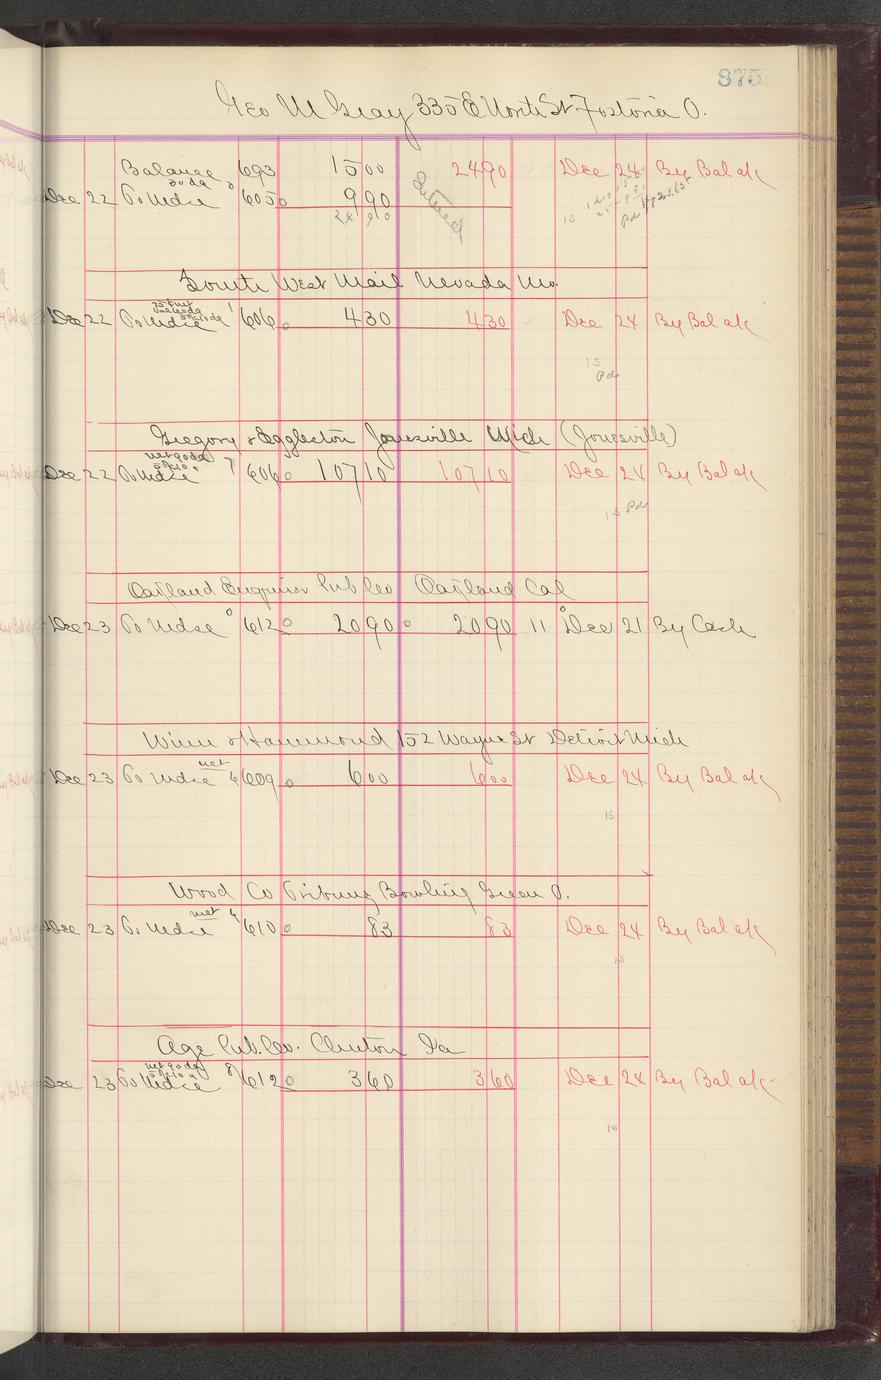 375
Geo M Gray 335 E North St Fostoria O.
Balance 693 15 00 24 90 Dec 24 By Bal a/c
30 da
Dec 22 To Mdse 605 9 90 Entered
24 90
15 Pd
South West Mail Nevada Mo.
Dec 22 To Mdse 606 4 30 4 30 Dec 24 By Bal a/c
15
Pd
Gregory & Eggleston Jonesville Mich (Jonesville)
net 90 da
Dec 22 To Mdse 7 606 107 10 107 10 Dec 24 By Bal a/c
15 Pd
Oakland Enquirer Pub Co Oakland Cal
Dec 23 To Mdse 612 20 90 20 90 11 Dec 21 By Cash
Winn & Hammond 152 Wayne St Detroit Mich
net
Dec 23 To Mdse 6 609 6 00 6 00 Dec 24 By Bal a/c
15
Wood Co Tribune Bowling Green O.
net
Dec 23 To Mdse 6 610 83 83 Dec 24 By Bal a/c
15
Age Pub. Co. Clinton Ia
net 90 da
Dec 23 To Mdse 8 612 3 60 3 60 Dec 24 By Bal a/c
10